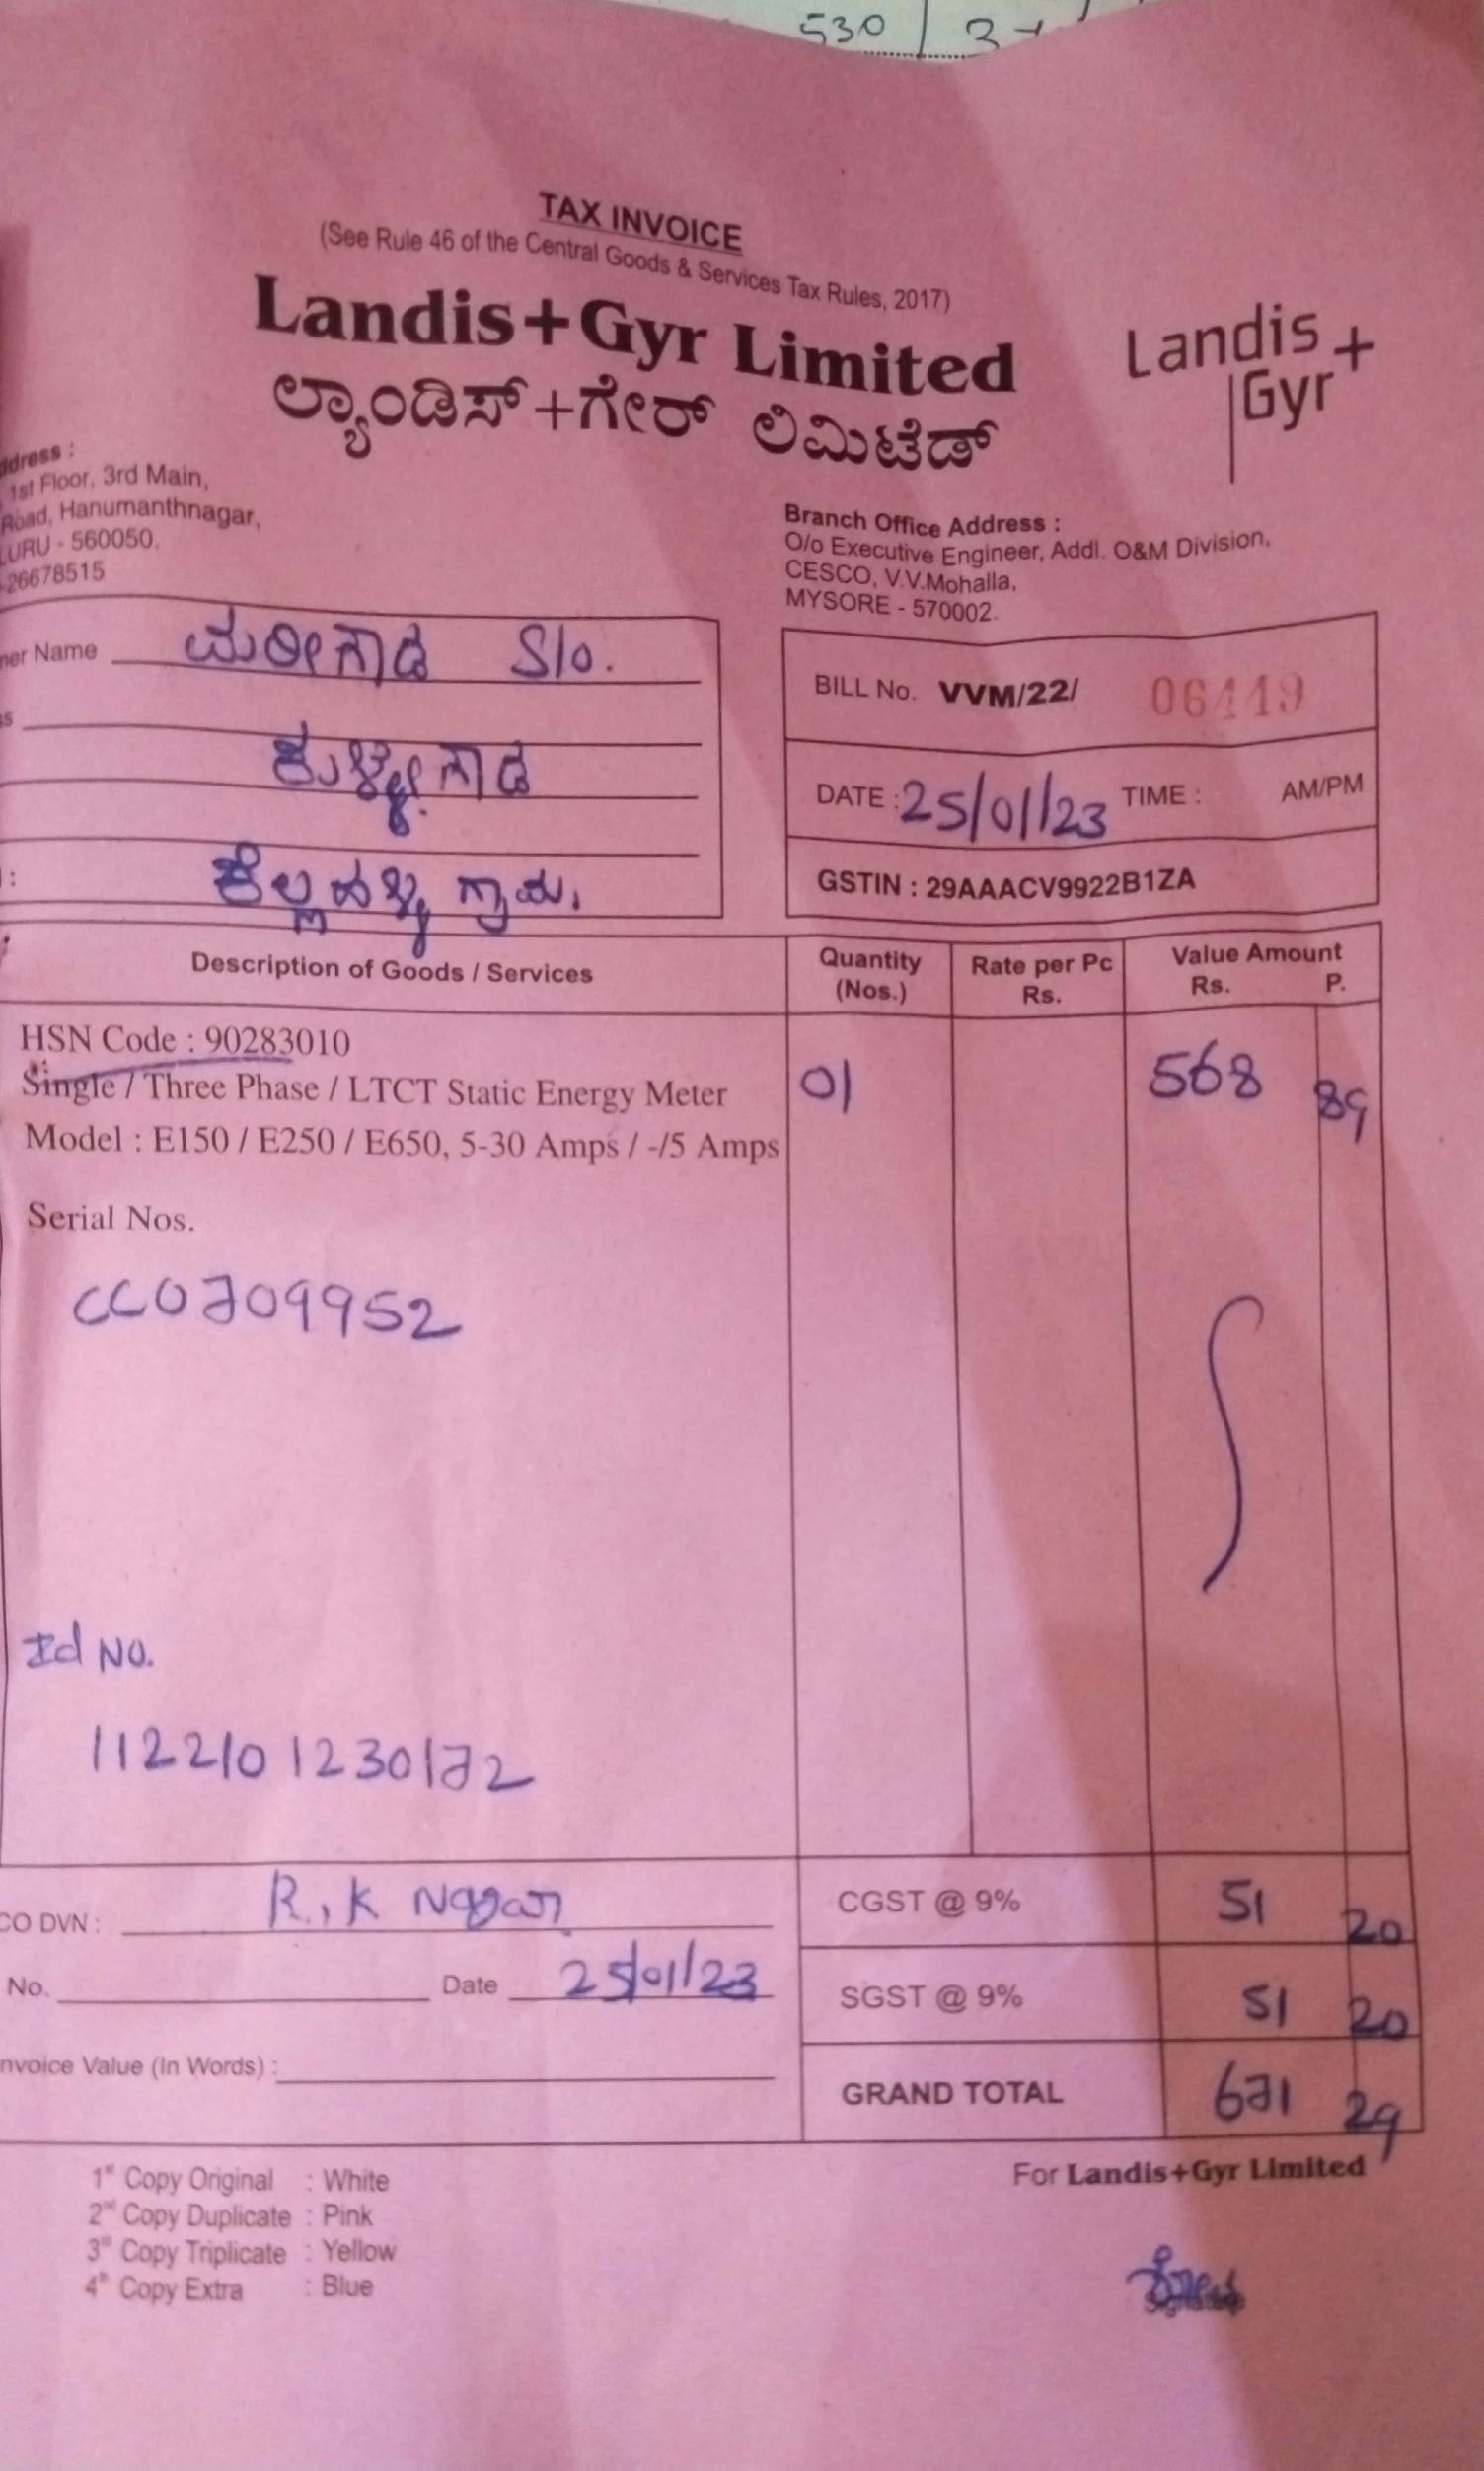 530 3
TAX INVOICE
(See Rule 46 of the Central Goods & Services Tax Rules, 2017)
Landis+Gyr Limited
ಲ್ಯಾಂಡಿಸ್+ಗೇರ್ ಲಿಮಿಟೆಡ್
Landis
Gyr+
ddress :
1st Floor, 3rd Main,
Road, Hanumanthnagar,
LURU - 560050.
-26678515
Branch Office Address :
O/o Executive Engineer, Addl. O&M Division,
CESCO, V.V.Mohalla,
MYSORE - 570002.
ner Name ಮರೀಗೌಡ S/o.
ss
ಕುಳ್ಳೇಗೌಡ
: ಕೆಲ್ಲಹಳ್ಳಿ ಗ್ರಾಮ.
BILL No. VVM/22/ 06449
DATE : 25/01/23 TIME : AM/PM
GSTIN : 29AAACV9922B1ZA
Description of Goods / Services Quantity (Nos.) Rate per Pc Rs. Value Amount Rs. P.
HSN Code : 90283010
Single / Three Phase / LTCT Static Energy Meter 01 568 89
Model : E150 / E250 / E650, 5-30 Amps / -/5 Amps
Serial Nos.
CC0709952
Id No.
1122101230172
CO DVN : R.K Nagar
No. Date 25/01/23
nvoice Value (In Words) :
CGST @ 9% 51 20
SGST @ 9% 51 20
GRAND TOTAL 671 29
1st Copy Original : White
2nd Copy Duplicate : Pink
3rd Copy Triplicate : Yellow
4th Copy Extra : Blue
For Landis+Gyr Limited